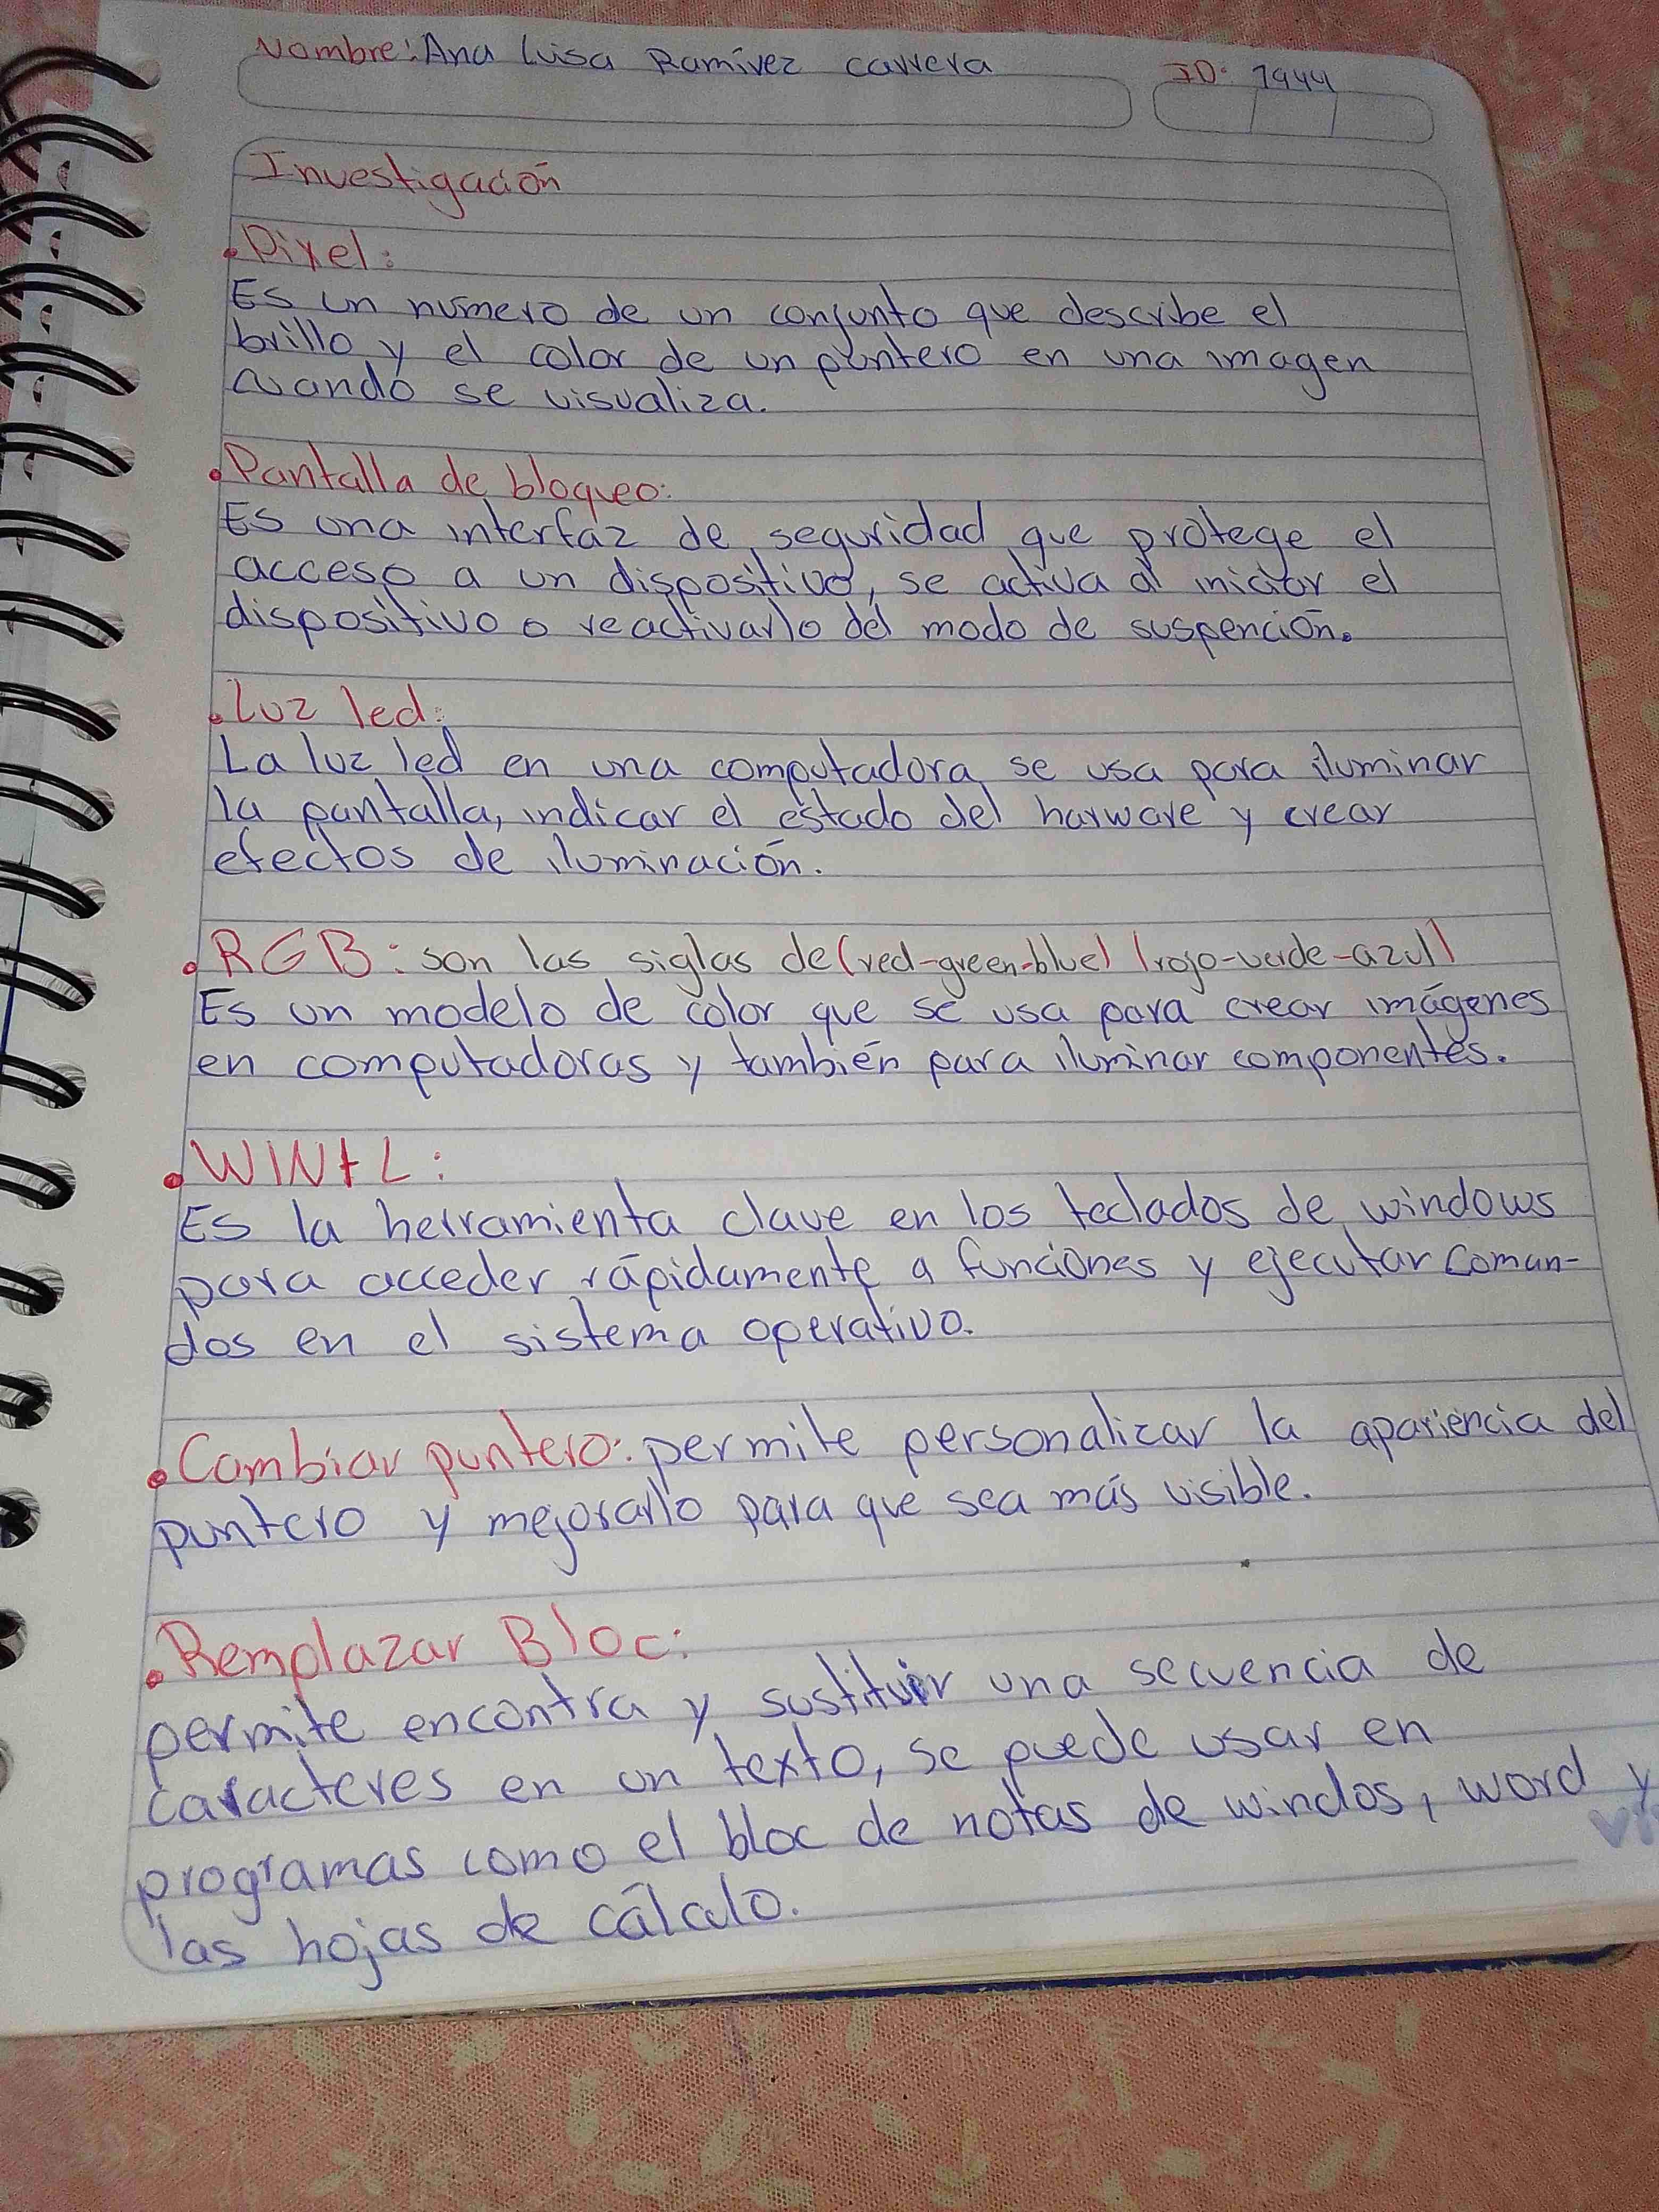 Nombre: Ana Luisa Ramírez carrera
ID: 1944
Investigación
• Pixel:
Es un número de un conjunto que describe el
brillo y el color de un puntero en una imagen
cuando se visualiza.
• Pantalla de bloqueo:
Es una interfaz de seguridad que protege el
acceso a un dispositivo, se activa al iniciar el
dispositivo o reactivarlo del modo de suspención.
• Luz led:
La luz led en una computadora se usa para iluminar
la pantalla, indicar el estado del harware y crear
efectos de iluminación.
• RGB: son las siglas de (red-green-blue) (rojo-verde-azul)
Es un modelo de color que se usa para crear imágenes
en computadoras y también para iluminar componentes.
• WIN+L:
Es la herramienta clave en los teclados de windows
para acceder rápidamente a funciones y ejecutar coman-
dos en el sistema operativo.
• Cambiar puntero: permite personalizar la apariencia del
puntero y mejorarlo para que sea más visible.
• Remplazar Bloc:
permite encontra y sustituir una secuencia de
caracteres en un texto, se puede usar en
programas como el bloc de notas de windos, word y
las hojas de cálculo.